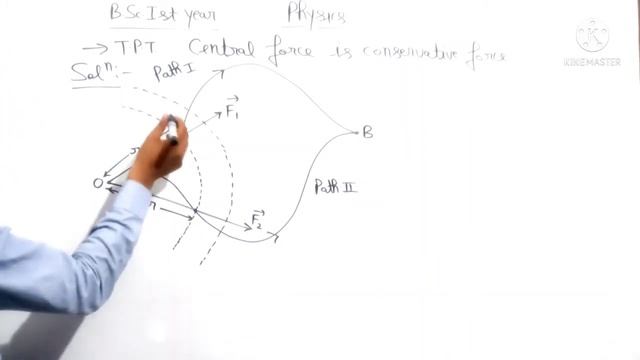 BSc Ist year Physics
→ TPT Central force is conservative force
Solⁿ:- Path I
F₁
B
O
r
Path II
F₂
KINEMASTER